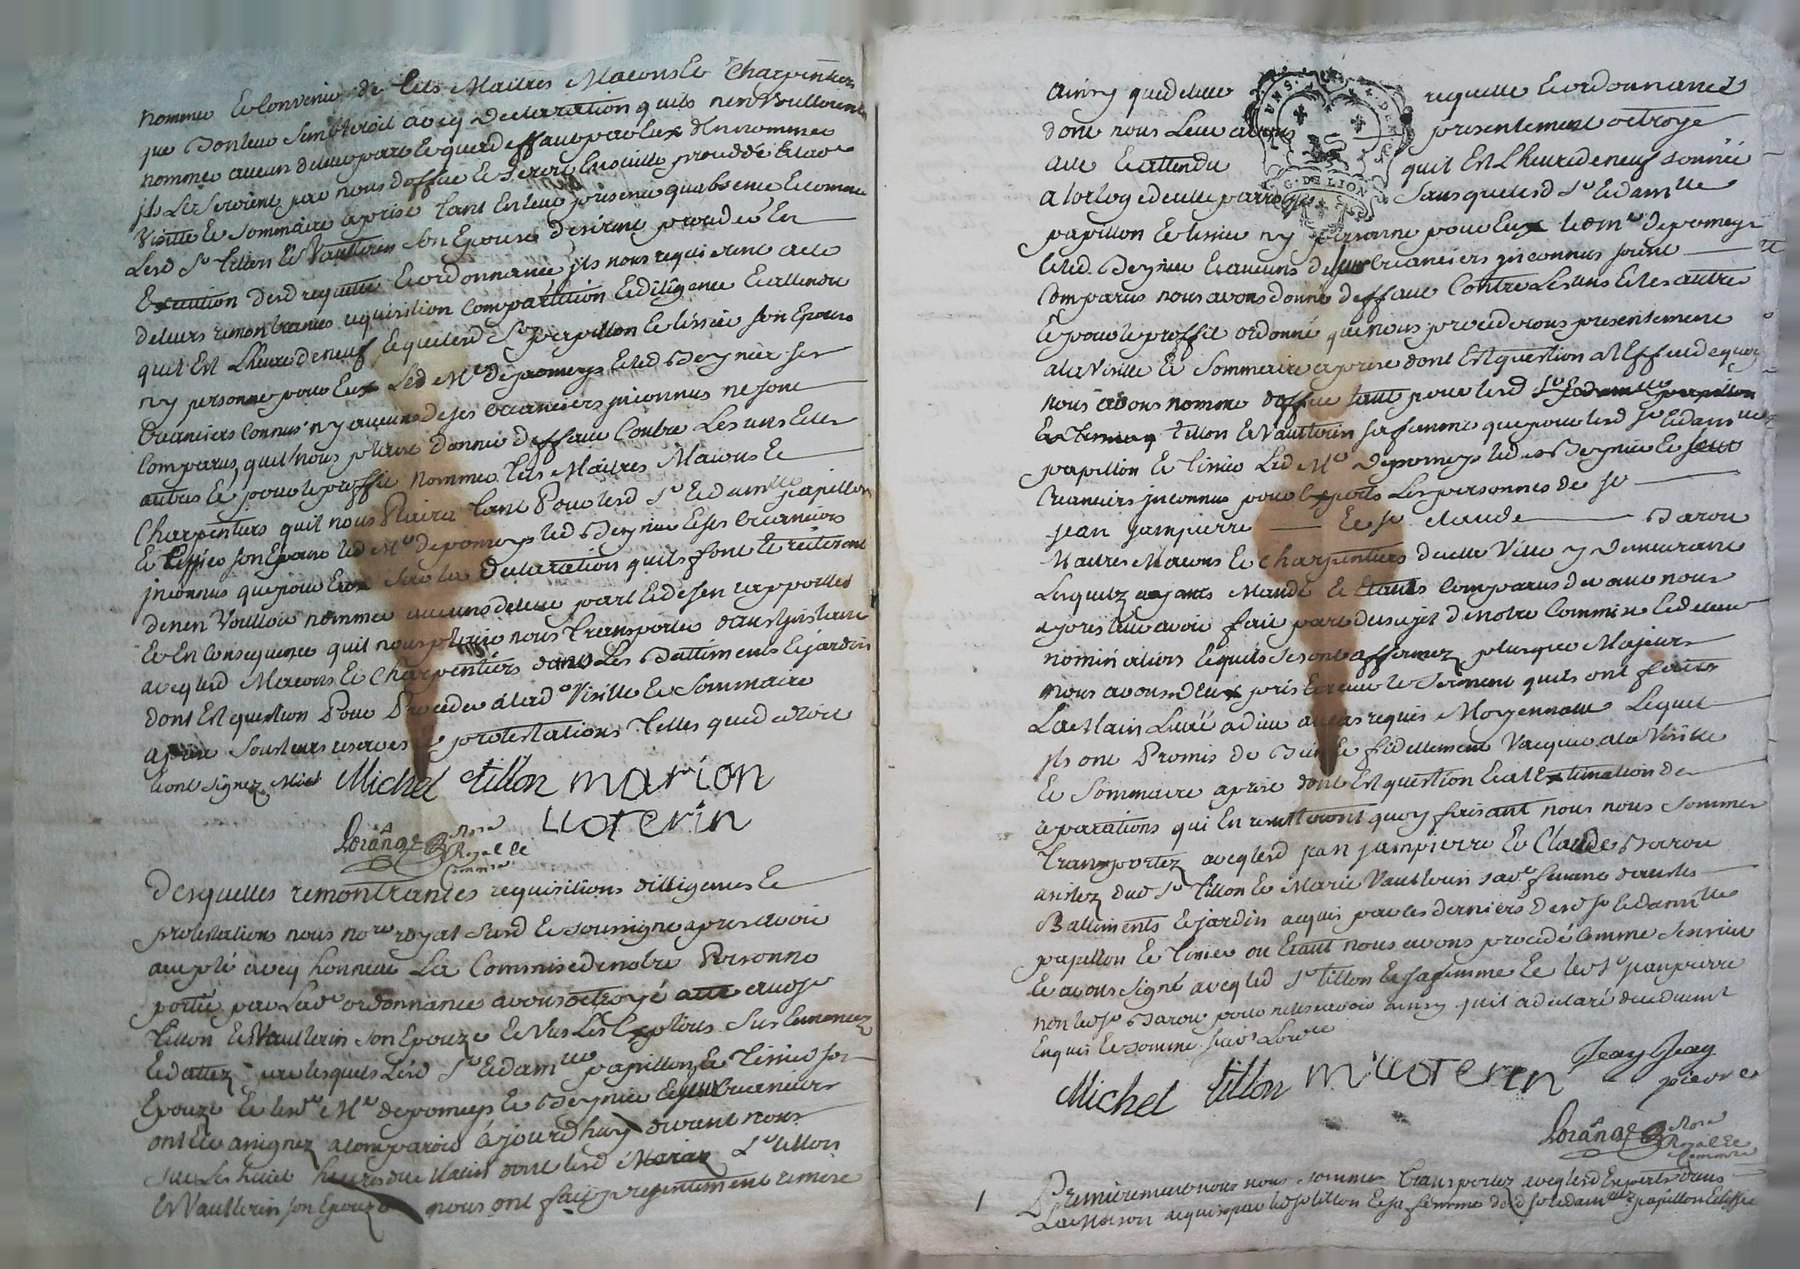 nommer & convenir de tels Maitres Macons & Charpentiers
que bon leur sembleroit avecq declaration quils nen Vouloient
nommer aucun de leur part & que a deffaut par Eux den nommer
jls Le seroient par nous doffice & seroit Ensuitte proceddé a lad.
Visitte & sommaire aprise tant En leur presence quabsence & comme
Lesd Sr Tillon & Vautterin son Epouse desirent proceder En
Execution desd requette & ordonnance jls nous requierent acte
de leurs remontrances requisition comparition & diligence & attendu
quil Est Lheure de neuf & que lesd Sr papillon & tissier son Epouse
ny personne pour Eux Led Mre depomeys & led Beynier ses
Creanciers Connus ny aucuns de ses creanciers jnconnus ne sont
Comparus, quil nous plaise donner deffaut Contre Les uns & les
autres & pour le proffit nommer tels Maitres Macons &
Charpentiers quil nous Plaira tant Pour lesd Sr & damlle papillon
& tissier son Epouse led Mre depomeys led Beynier & ses Creanciers
jnconnus que pour Eux sur la declaration quils font & reiterent
de nen Vouloir nommer aucuns de leur part & de sen rapporter
& En Consequence quil nous plaise nous transporter dans linstant
avecq lesd Macons & Charpentiers dans Les Battiments & jardin
dont Est question Pour Proceder a lad Visitte & Sommaire
aprise sous leurs reserves & protestations telles que de droit
& ont signez
Michel tillon marion
uoterin
Lorange Nore
Royal &
Commre
Desquelles remontrances requisitions dilligences &
protestations nous nore royal susd & soussigné apres avoir
accepté avecq honneur La Commise de notre Personne
portée par Lade ordonnance avons octroyé acte auxd Sr
Tillon & Vautterin son Epouze & Vus Les Exploits sus Enoncez
& dattez par lesquels Lesd Sr & damlle papillon & tissier son
Epouze & lesd Mre depomeys & Beynier & ses creanciers
ont Ete assignez a comparoir a jourdhuy devant nous
sur Les huit heures du Matin dont lesd Sr tillon
& Vautterin son Epouze nous ont fait presentement remise
ainsy que de leur requette & ordonnance
dont nous Leur avons presentement octroye
acte & attendu quil Est Lheure de neuf sonnée
G. DE LION
a lorloge de cette parroisse sans que lesd Sr & damlle
papillon & tissier ny personne pour Eux led Mre depomeys
& led Beynier & aucuns de ses creanciers jnconnus soient
Comparus nous avons donné deffaut Contre Les uns & les autres
& pour le proffit ordonné que nous procederons presentement
a la Visitte & Sommaire aprise dont Est question a lEffet de quoy
nous avons nommé doffice tant pour lesd
tillon & Vautterin sa femme que pour lesd Sr & damlle
papillon & tissier Led Mre depomeys led Beynier & ses
Creanciers jnconnus pour Experts Les personnes de Sr
jean jampierre & Sr claude Barou
Maitres Macons & Charpentiers de cette Ville y Demeurant
Lesquelz ayants Mandé & Etants Comparus devant nous
apres leur avoir fait part du sujet de notre Commise & de leur
nominations & quils se sont affermez plus que Majeurs
nous avons deux pris & receu le serment quils ont fait
La Main Levée a dieu au cas requis Moyennant Lequel
jls ont Promis de bien & fidellement Vacquer a la Visitte
& Sommaire aprise dont Est question & a lEstimation de
reparations qui En resulteront quoy faisant nous nous sommes
transportez avecq lesd jean jampierre & Claude Barou
assistez dud Sr tillon & Marie Vautterin sade femme dans les
Battiments & jardin acquis par les derniers desd Sr & damlle
papillon & tissier ou Etant nous avons procedé comme sensuit
& avons signé avecq led Sr tillon & sa femme & led Sr janpierre
non led Sr Barou pour ne le scavoir ainsy quil a declaré de ce duement
Enquis & sommé
Michel tillon m uoterin Jean Jean
pierre
Lorange Nore
Royal &
Commre
Premierement nous nous sommes transportez avecq lesd Experts dans
La Maison acquise par led Sr tillon & sa femme desd Sr & damlle papillon & tissier